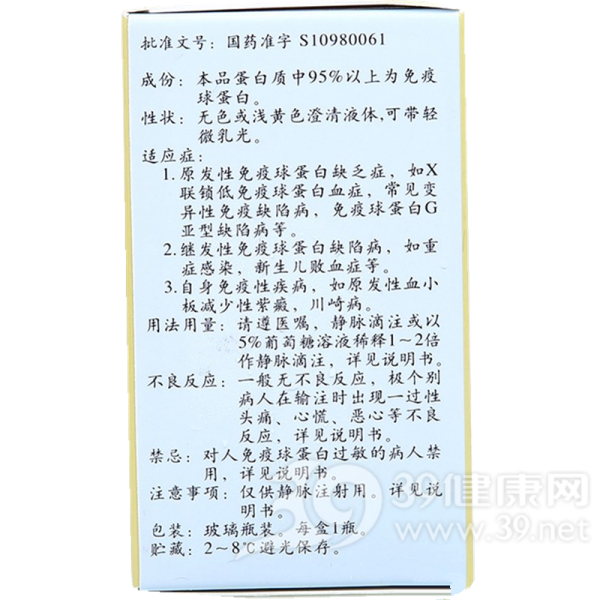 批准文号：国药准字 S10980061
成份：本品蛋白质中95%以上为免疫
球蛋白。
性状：无色或浅黄色澄清液体,可带轻
微乳光。
适应症：
1.原发性免疫球蛋白缺乏症，如X
联锁低免疫球蛋白血症，常见变
异性免疫缺陷病，免疫球蛋白G
亚型缺陷病等。
2.继发性免疫球蛋白缺陷病，如重
症感染，新生儿败血症等。
3.自身免疫性疾病，如原发性血小
板减少性紫癜，川崎病。
用法用量：请遵医嘱，静脉滴注或以
5%葡萄糖溶液稀释1~2倍
作静脉滴注，详见说明书。
不良反应：一般无不良反应，极个别
病人在输注时出现一过性
头痛、心慌、恶心等不良
反应，详见说明书。
禁忌：对人免疫球蛋白过敏的病人禁
用，详见说明书。
注意事项：仅供静脉注射用。详见说
明书。
包装：玻璃瓶装。每盒1瓶。
贮藏：2~8℃避光保存。
39健康网
www.39.net